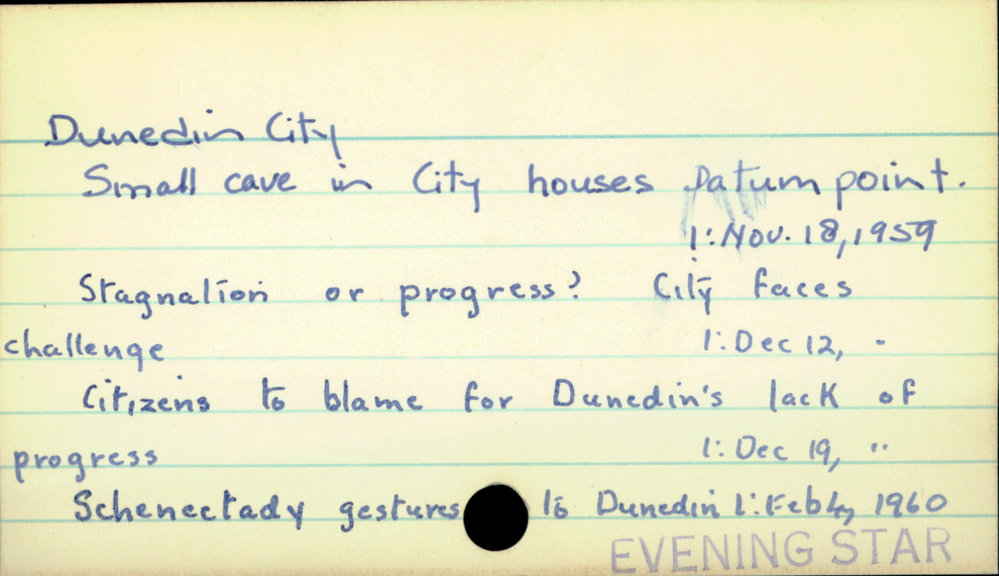 Dunedin City
Small cave in City houses Datum point.
1: Nov. 18, 1959
Stagnation or progress? City faces
challenge 1: Dec 12, "
Citizens to blame for Dunedin's lack of
progress 1: Dec 19, "
Schenectady gestures to Dunedin 1: Feb 4, 1960
EVENING STAR